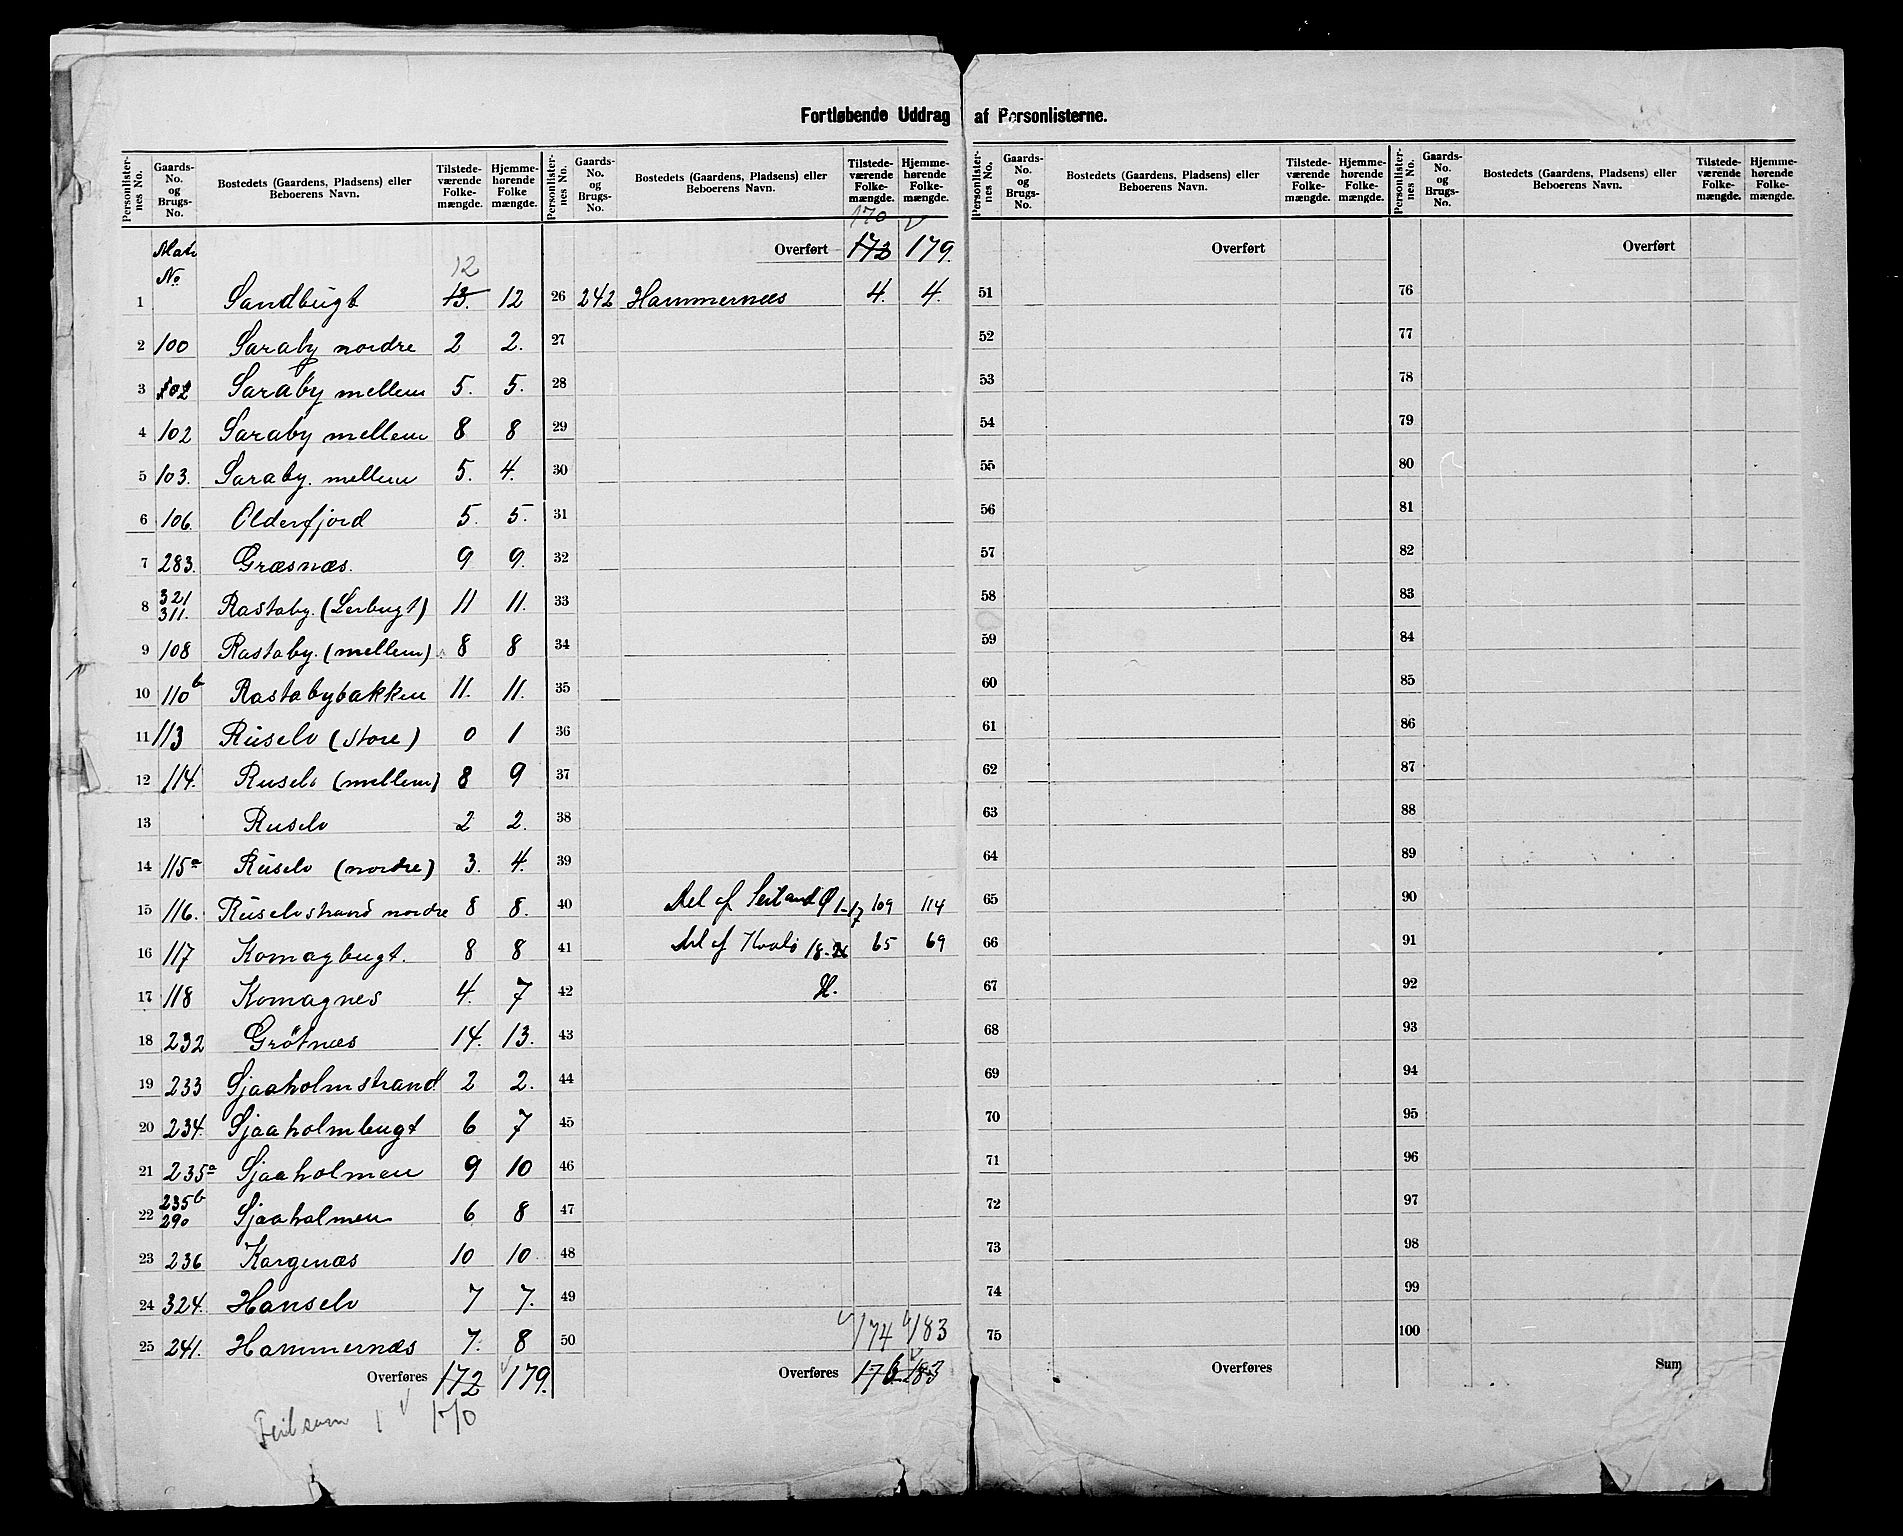 Fortløbende Uddrag af Personlisterne.
Personlisternes No. | Gaards-No. og Brugs-No. | Bostedets (Gaardens, Pladsens) eller Beboerens Navn. | Tilstedeværende Folkemængde. | Hjemmehørende Folkemængde.
Personlisternes No. | Gaards-No. og Brugs-No. | Bostedets (Gaardens, Pladsens) eller Beboerens Navn. | Tilstedeværende Folkemængde. | Hjemmehørende Folkemængde.
Personlisternes No. | Gaards-No. og Brugs-No. | Bostedets (Gaardens, Pladsens) eller Beboerens Navn. | Tilstedeværende Folkemængde. | Hjemmehørende Folkemængde.
Personlisternes No. | Gaards-No. og Brugs-No. | Bostedets (Gaardens, Pladsens) eller Beboerens Navn. | Tilstedeværende Folkemængde. | Hjemmehørende Folkemængde.
Matr No
12
1 Sandbugt 13. 12
2 100 Saraby nordre 2 2.
3 102 Saraby mellem 5. 5.
4 102 Saraby mellem 8 8
5 103. Saraby. mellem 5. 4.
6 106. Olderfjord 5. 5.
7 283. Græsnæs. 9 9.
8 321 311. Rastaby. (Lerbugt) 11 11.
9 108 Rastaby. (mellem) 8 8
10 110b Rastabybakken 11. 11.
11 113 Ruselv (store) 0 1
12 114. Ruselv (mellem) 8 9
13 Ruselv 2 2.
14 115a Ruselv (nordre) 3. 4.
15 116. Ruselvstrand nordre 8 8.
16 117 Komagbugt. 8 8
17 118 Komagnes 4. 7
18 232 Grötnæs 14. 13.
19 233 Sjaaholmstrand 2 2.
20 234. Sjaaholmbugt 6 7
21 235a Sjaaholmen 9 10
22 235b 290 Sjaaholmen 6 8
23 236 Kargenæs 10 10
24 324. Hanselv 7 7.
25 241. Hammernæs 7. 8
Overføres 172 179.
Feilsum 1 170
170
Overført 172 179.
26 242 Hammernæs 4. 4.
27
28
29
30
31
32
33
34
35
36
37
38
39
40 Del af Seiland Ø 1-17 109 114
41 Del af Kvalö 18-26 65 69
42 H.
43
44
45
46
47
48
49
174 183
50
Overføres 176 183
Overført
51
52
53
54
55
56
57
58
59
60
61
62
63
64
65
66
67
68
69
70
71
72
73
74
75
Overføres
Overført
76
77
78
79
80
81
82
83
84
85
86
87
88
89
90
91
92
93
94
95
96
97
98
99
100
Sum